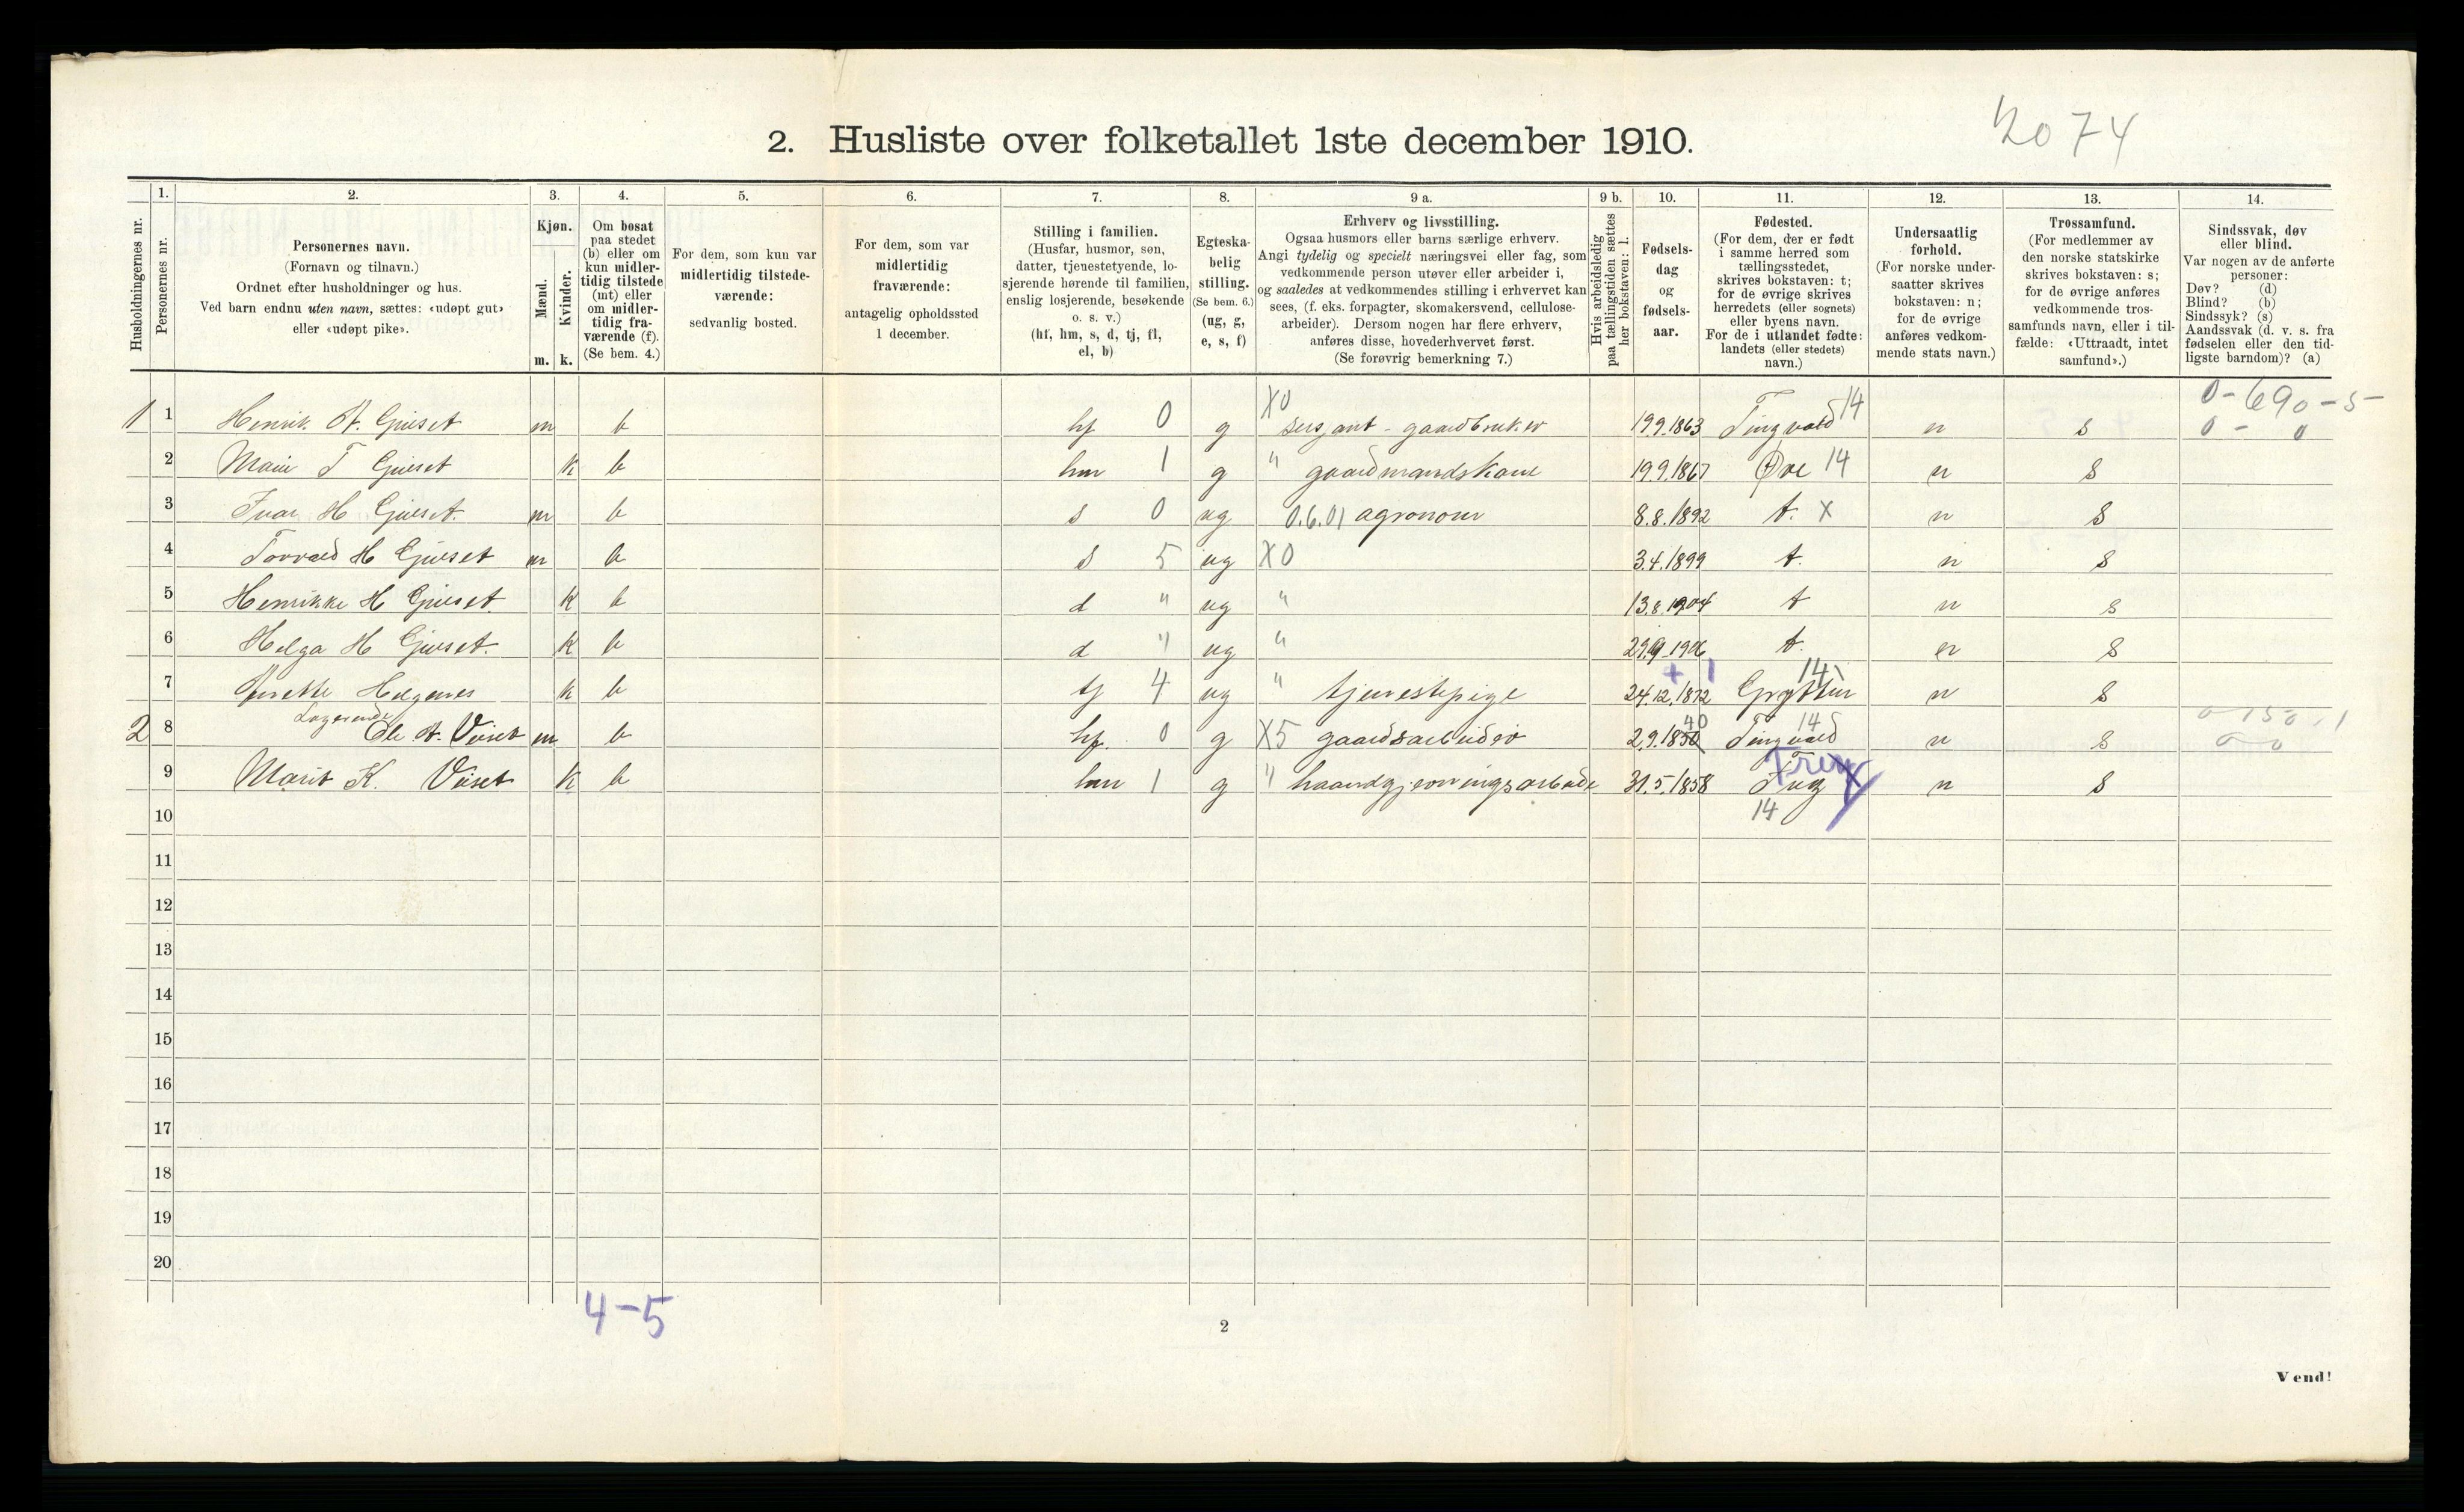 2074
2. Husliste over folketallet 1ste december 1910.
Husholdningernes nr.
1. Personernes nr.
2. Personernes navn. (Fornavn og tilnavn.) Ordnet efter husholdninger og hus. Ved barn endnu uten navn, sættes: «udøpt gut» eller «udøpt pike».
3. Kjøn. Mænd. m. Kvinder. k.
4. Om bosat paa stedet (b) eller om kun midler-tidig tilstede (mt) eller om midler-tidig fra-værende (f). (Se bem. 4.)
5. For dem, som kun var midlertidig tilstede-værende: sedvanlig bosted.
6. For dem, som var midlertidig fraværende: antagelig opholdssted 1 december.
7. Stilling i familien. (Husfar, husmor, søn, datter, tjenestetyende, lo-sjerende hørende til familien, enslig losjerende, besøkende o. s. v.) (hf, hm, s, d, tj, fl, el, b)
8. Egteska-belig stilling. (Se bem. 6.) (ug, g, e, s, f)
9 a. Erhverv og livsstilling. Ogsaa husmors eller barns særlige erhverv. Angi tydelig og specielt næringsvei eller fag, som vedkommende person utøver eller arbeider i, og saaledes at vedkommendes stilling i erhvervet kan sees, (f. eks. forpagter, skomakersvend, cellulose-arbeider). Dersom nogen har flere erhverv, anføres disse, hovederhvervet først. (Se forøvrig bemerkning 7.)
9 b. Hvis arbeidsledig paa tællingstiden sættes her bokstaven: l.
10. Fødsels-dag og fødsels-aar.
11. Fødested. (For dem, der er født i samme herred som tællingsstedet, skrives bokstaven: t; for de øvrige skrives herredets (eller sognets) eller byens navn. For de i utlandet fødte: landets (eller stedets) navn.)
12. Undersaatlig forhold. (For norske under-saatter skrives bokstaven: n; for de øvrige anføres vedkom-mende stats navn.)
13. Trossamfund. (For medlemmer av den norske statskirke skrives bokstaven: s; for de øvrige anføres vedkommende tros-samfunds navn, eller i til-fælde: «Uttraadt, intet samfund».)
14. Sindssvak, døv eller blind. Var nogen av de anførte personer: Døv? (d) Blind? (b) Sindssyk? (s) Aandssvak (d. v. s. fra fødselen eller den tid-ligste barndom)? (a)
0-690-5-
1 1 Henrik A. Gjuset m b hf 0 g X0 sersjant - gaardbruker 19.9.1863 Tingvold 14 n s 0 - 0
2 T Gjuset k b hm 1 g " gaardmandskone 19.9.1867 Øre 14 n s
3 Ivar H Gjuset. m b s 0 ug 0.6.01 agronom 8.8.1892 t. X n s
4 Torvald H Gjuset m b s 5 ug X0 3.4.1899 t. n s
5 Henrikke H Gjuset. k b d " ug " 13.8.1904 t n s
6 Helga H Gjuset. k b d " ug " 1906 t. n s
+ 1
7 k b tj 4 ug " tjenestepige 24.12.1872 Grytten 14 n s
Logerende
2 8 Ole A. Viset m b hf. 0 g X5 gaardsarbeider 2.9.1850 40 Tingvold 14 n s
9 Marit K. Viset k b hm 1 g " haandgjerningsarbeide 31.5.1858 Frei 14 n s
10
11
12
13
14
15
16
17
18
19
20
4-5
2
Vend!